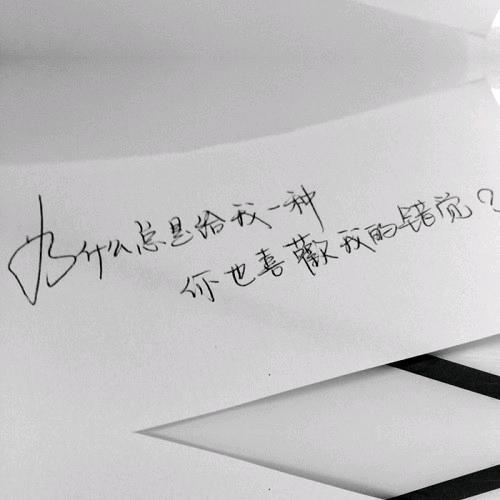 为什么总是给我一种
你也喜歡我的错觉?